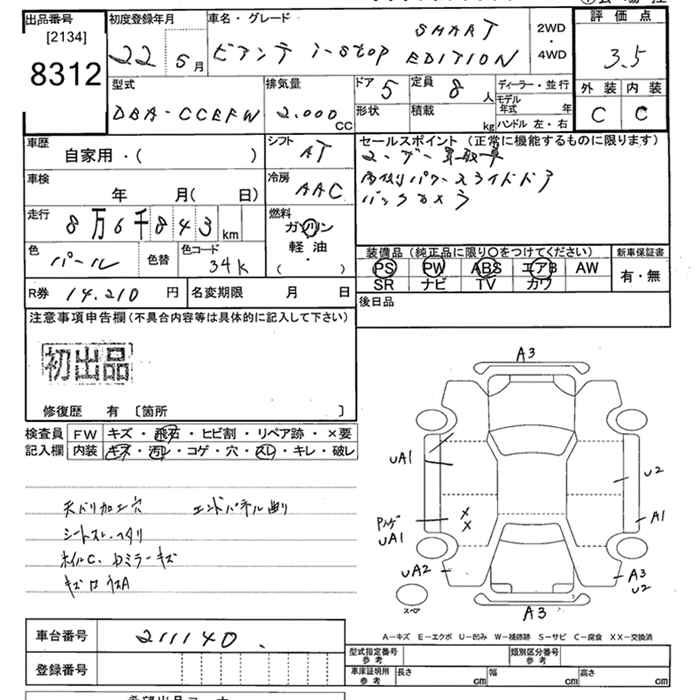 出品番号 [2134] 8312
初度登録年月 22 5月
車名・グレード
ビアンテ i-stop SMART EDITION
2WD・4WD
評価点 3.5
外装 内装
C C
型式 DBA-CCEFW
排気量 2.000 CC
ドア 5
定員 8 人
形状
積載 kg
ディーラー・並行
モデル年式 年
ハンドル 左・右
車歴 自家用・( )
シフト AT
セールスポイント (正常に機能するものに限ります)
ユーザー買取車
両側パワースライドドア
バックカメラ
車検 年 月( 日)
冷房 AAC
走行 8万6千843 km
燃料 ガソリン 軽油 ( ・ )
色 パール
色替
色コード 34K
装備品 (純正品に限り○をつけてください)
PS PW ABS エアB AW
SR ナビ TV カワ
新車保証書 有・無
R券 14.210 円
名変期限 月 日
後日品
注意事項申告欄 (不具合内容等は具体的に記入して下さい)
初出品
修復歴 有 〔箇所 〕
検査員記入欄
FW キズ・飛石・ヒビ割・リペア跡・×要
内装 キズ・汚レ・コゲ・穴・スレ・キレ・破レ
天バリ加工穴 エンドパネル曲り
シートスレ・ヘタリ
ホイルC、Dミラーキズ
A3
UA1
U2
A1
UA1
UA2
X X
A3 U2
A3
スペア
A－キズ E－エクボ U－凹み W－補修跡 S－サビ C－腐食 XX－交換済
車台番号 211140
登録番号
型式指定番号 参考
類別区分番号 参考
車庫証明用 参考
長さ cm 幅 cm 高さ cm